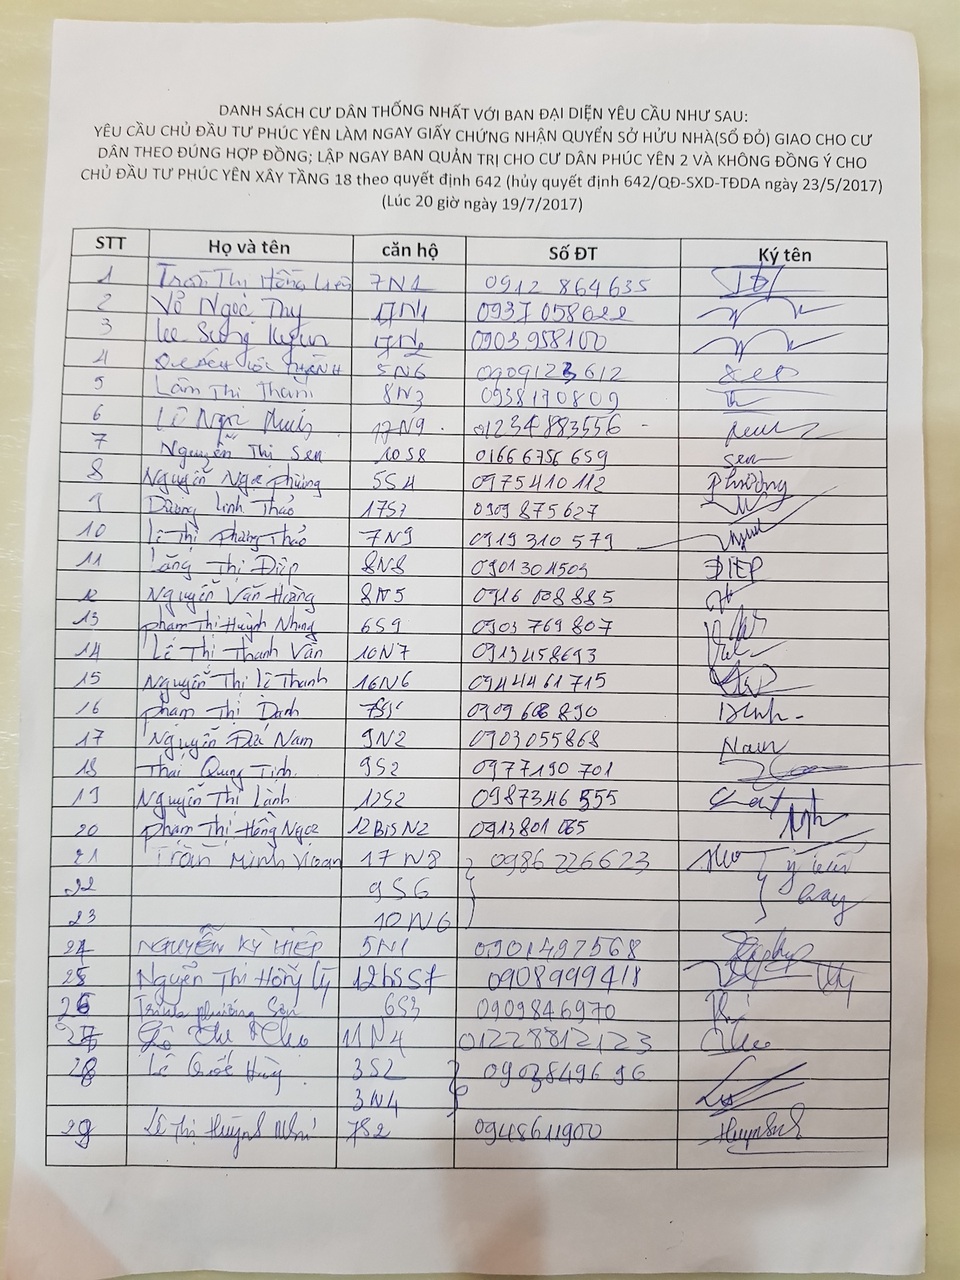 DANH SÁCH CƯ DÂN THỐNG NHẤT VỚI BAN ĐẠI DIỆN YÊU CẦU NHƯ SAU:
YÊU CẦU CHỦ ĐẦU TƯ PHÚC YÊN LÀM NGAY GIẤY CHỨNG NHẬN QUYỀN SỞ HỬU NHÀ(SỔ ĐỎ) GIAO CHO CƯ
DÂN THEO ĐÚNG HỢP ĐỒNG; LẬP NGAY BAN QUẢN TRỊ CHO CƯ DÂN PHÚC YÊN 2 VÀ KHÔNG ĐỒNG Ý CHO
CHỦ ĐẦU TƯ PHÚC YÊN XÂY TẦNG 18 theo quyết định 642 (hủy quyết định 642/QĐ-SXD-TĐDA ngày 23/5/2017)
(Lúc 20 giờ ngày 19/7/2017)
STT Họ và tên căn hộ Số ĐT Ký tên
1 Trần Thị Hồng Liên 7N1 0912 864635
2 Võ Ngọc Thy 17N1 0937 058022
3 17N2 0903 958100
4 5N6 0909123612
5 Lâm Thị Thanh 8N3 0938170809
6 Lê 17N9 01234883556
7 Nguyễn Thị Sen 10S8 01666756659 sen
8 Nguyễn Ngọc Phường 5S4 0975410112 Phường
9 Dương Linh Thảo 17S3 0909 875627
10 Lê Thị Phương Thảo 7N9 0919 310 579
11 Lăng Thị Điệp 8N8 0901304503 ĐIỆP
12 Nguyễn Văn Hoàng 8N5 0916 008885
13 Phạm Thị Huỳnh Nhung 6S9 0903 769 807
14 Lê Thị Thanh Vân 10N7 0913458693
15 Nguyễn Thị Lê Thanh 16N6 0944461715
16 Phạm Thị Danh 0909 608 890
17 Nguyễn Đức Nam 9N2 0903055868 Nam
18 Thái Quang Tịnh 9S2 0977190 701
19 Nguyễn Thị Lành 12S2 0987346 555
20 Phạm Thị Hồng Ngọc 12BisN2 0913801 065
21 Trần Minh Xoan 17N8 0986226623
22 9S6
23 10N6
24 NGUYỄN KỲ HIỆP 5N1 0901497568
25 Nguyễn Thị Hồng Lý 12bSS7 0908999418
26 Trịnh Phương 6S3 0909846970
27 11N4 01228812123
28 Lê Quốc Hùng 3S2 0903849696
3N4
29 Lê Thị Huỳnh Như 7S2 0948611900